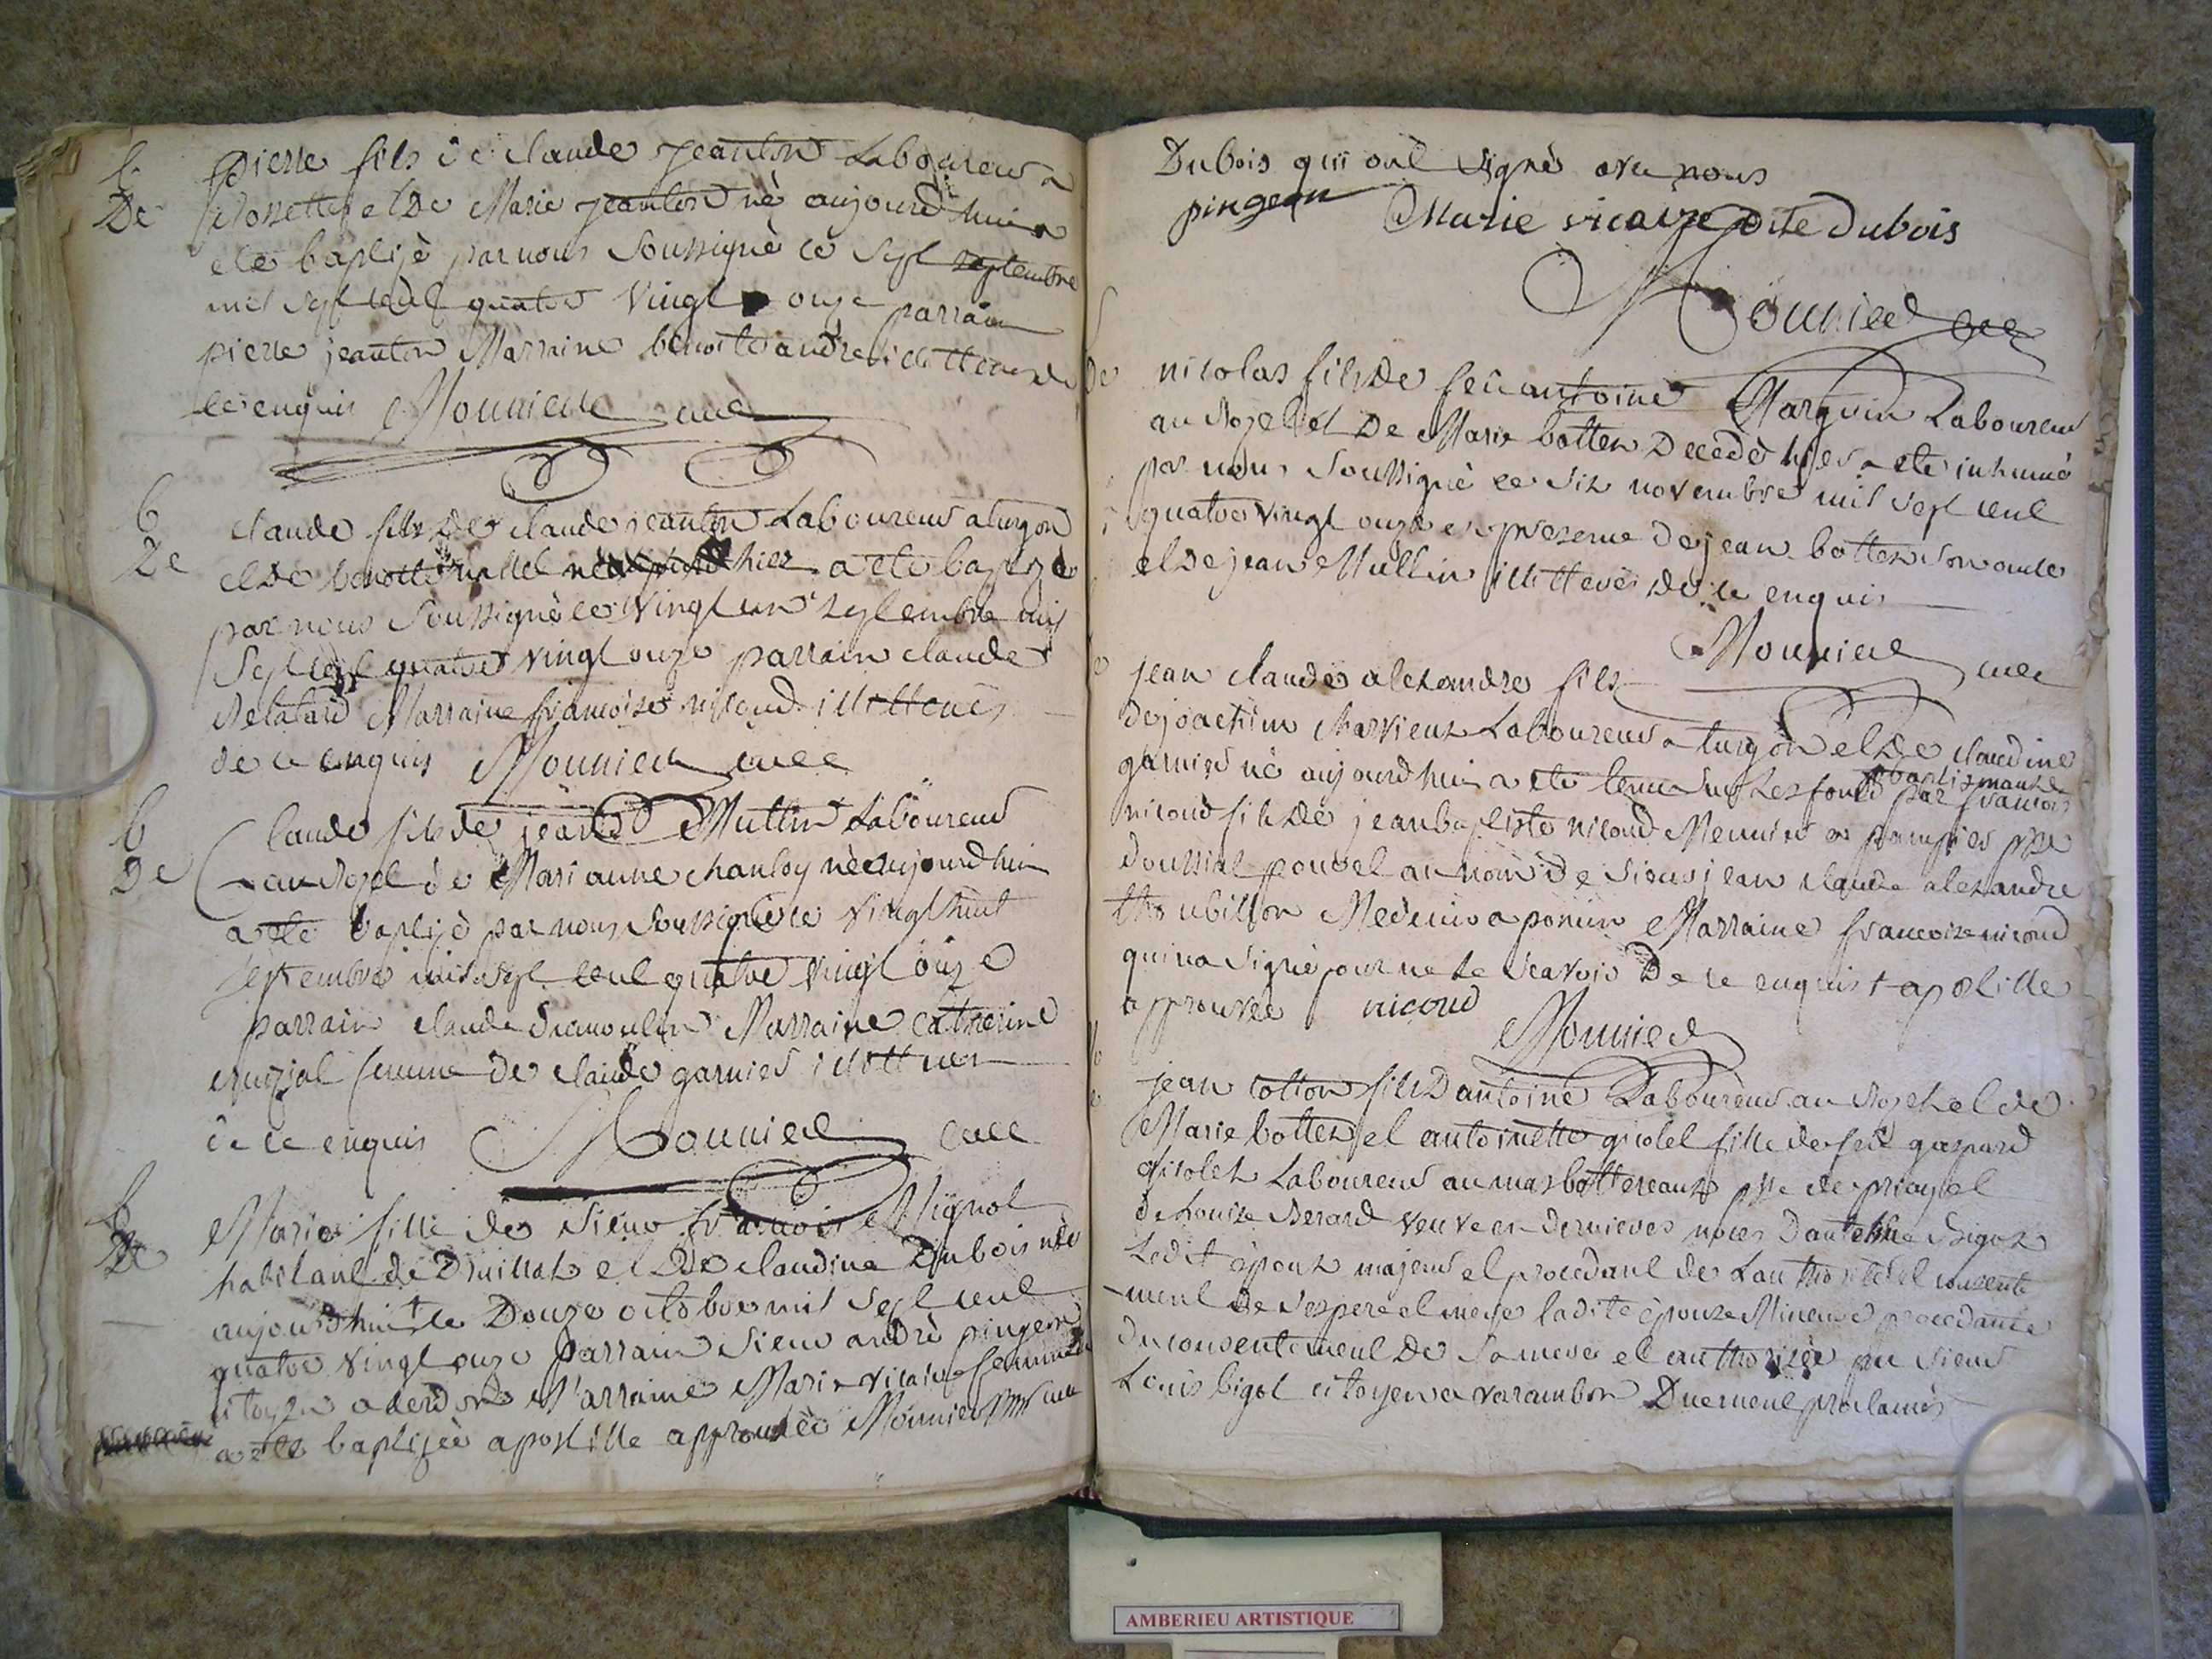 b.
De
pierre fils de claude jeanton Laboureur a
Rossettes et De Marie jeanton né aujourdhui a
eté baptisé par nous Soussigné ce sept septembre
mil sept cent quatre vingt onze parrain
pierre jeanton Marraine benoite andre illitterés de
ce enquis Mounier curé
b
De
claude fils De claude jeanton Laboureur a turgon
et De benoite hier a eté baptizé
par nous Soussigné ce vingt un septembre mil
Sept cent quatre vingt onze parrain claude
Marraine francoise nicoud illitterés
de ce enquis Mounier curé
b
De
Claude fils de jean Muttin Laboureur
au et de Marianne chanloy né aujourdhui
a eté baptisé par nous Soussigné ce vingt huit
septembre mil sept cent quatre vingt onze
parrain claude Marraine catherine
femme de claude garnier illitterés
de ce enquis Mounier curé
b
De
Marie fille de Sieur francois Mignot
habitant de Druillat et De claudine Dubois née
aujourdhui + le Douze octobre mil sept cent
quatre vingt onze parrain Sieur andré pingeon
citoyen a Marraine Marie vicaire femme
a eté baptisée apostille approuvée Mounier curé
Dubois qui ont signé avec nous
pingeon Marie vicaire dite Dubois
Mounier curé
De
nicolas fils De feu antoine Marguin Laboureur
au et De Marie botten Decedé hier a eté inhumé
par nous Soussigné ce six novembre mil sept cent
quatre vingt onze en presence De jean botten son oncle
et De jean Muttin illitterés de ce enquis
Mounier curé
jean claude alexandre fils
De joachim charvieux Laboureur a turgon et De claudine
garnier né aujourdhui a eté tenu sur Les fonds baptismaux par francois
nicoud fils De jean baptiste nicoud Meunier a pampier psse
Doussiat pour et au nom de Sieur jean claude alexandre
ubillon Medecin a poncin Marraine francoise nicoud
qui na signé pour ne le scavoir De ce enquis + apostille
approuvée nicoud
Mounier
jean cotton fils D antoine Laboureur au et de
Marie botten et antoinette girolet fille de feu gaspard
girolet Laboureur au mas bottereaux psse de priay et
de Louise Berard veuve en dernieres noces Dantelme
Ledit époux majeur et procedant de Lauthorité et consente
-ment De ses pere et mere ladite épouze Mineure procedante
du consentement De Sa mere et authorisée par sieur
Louis bigot citoyen a varambon Duement proclamés
AMBERIEU ARTISTIQUE